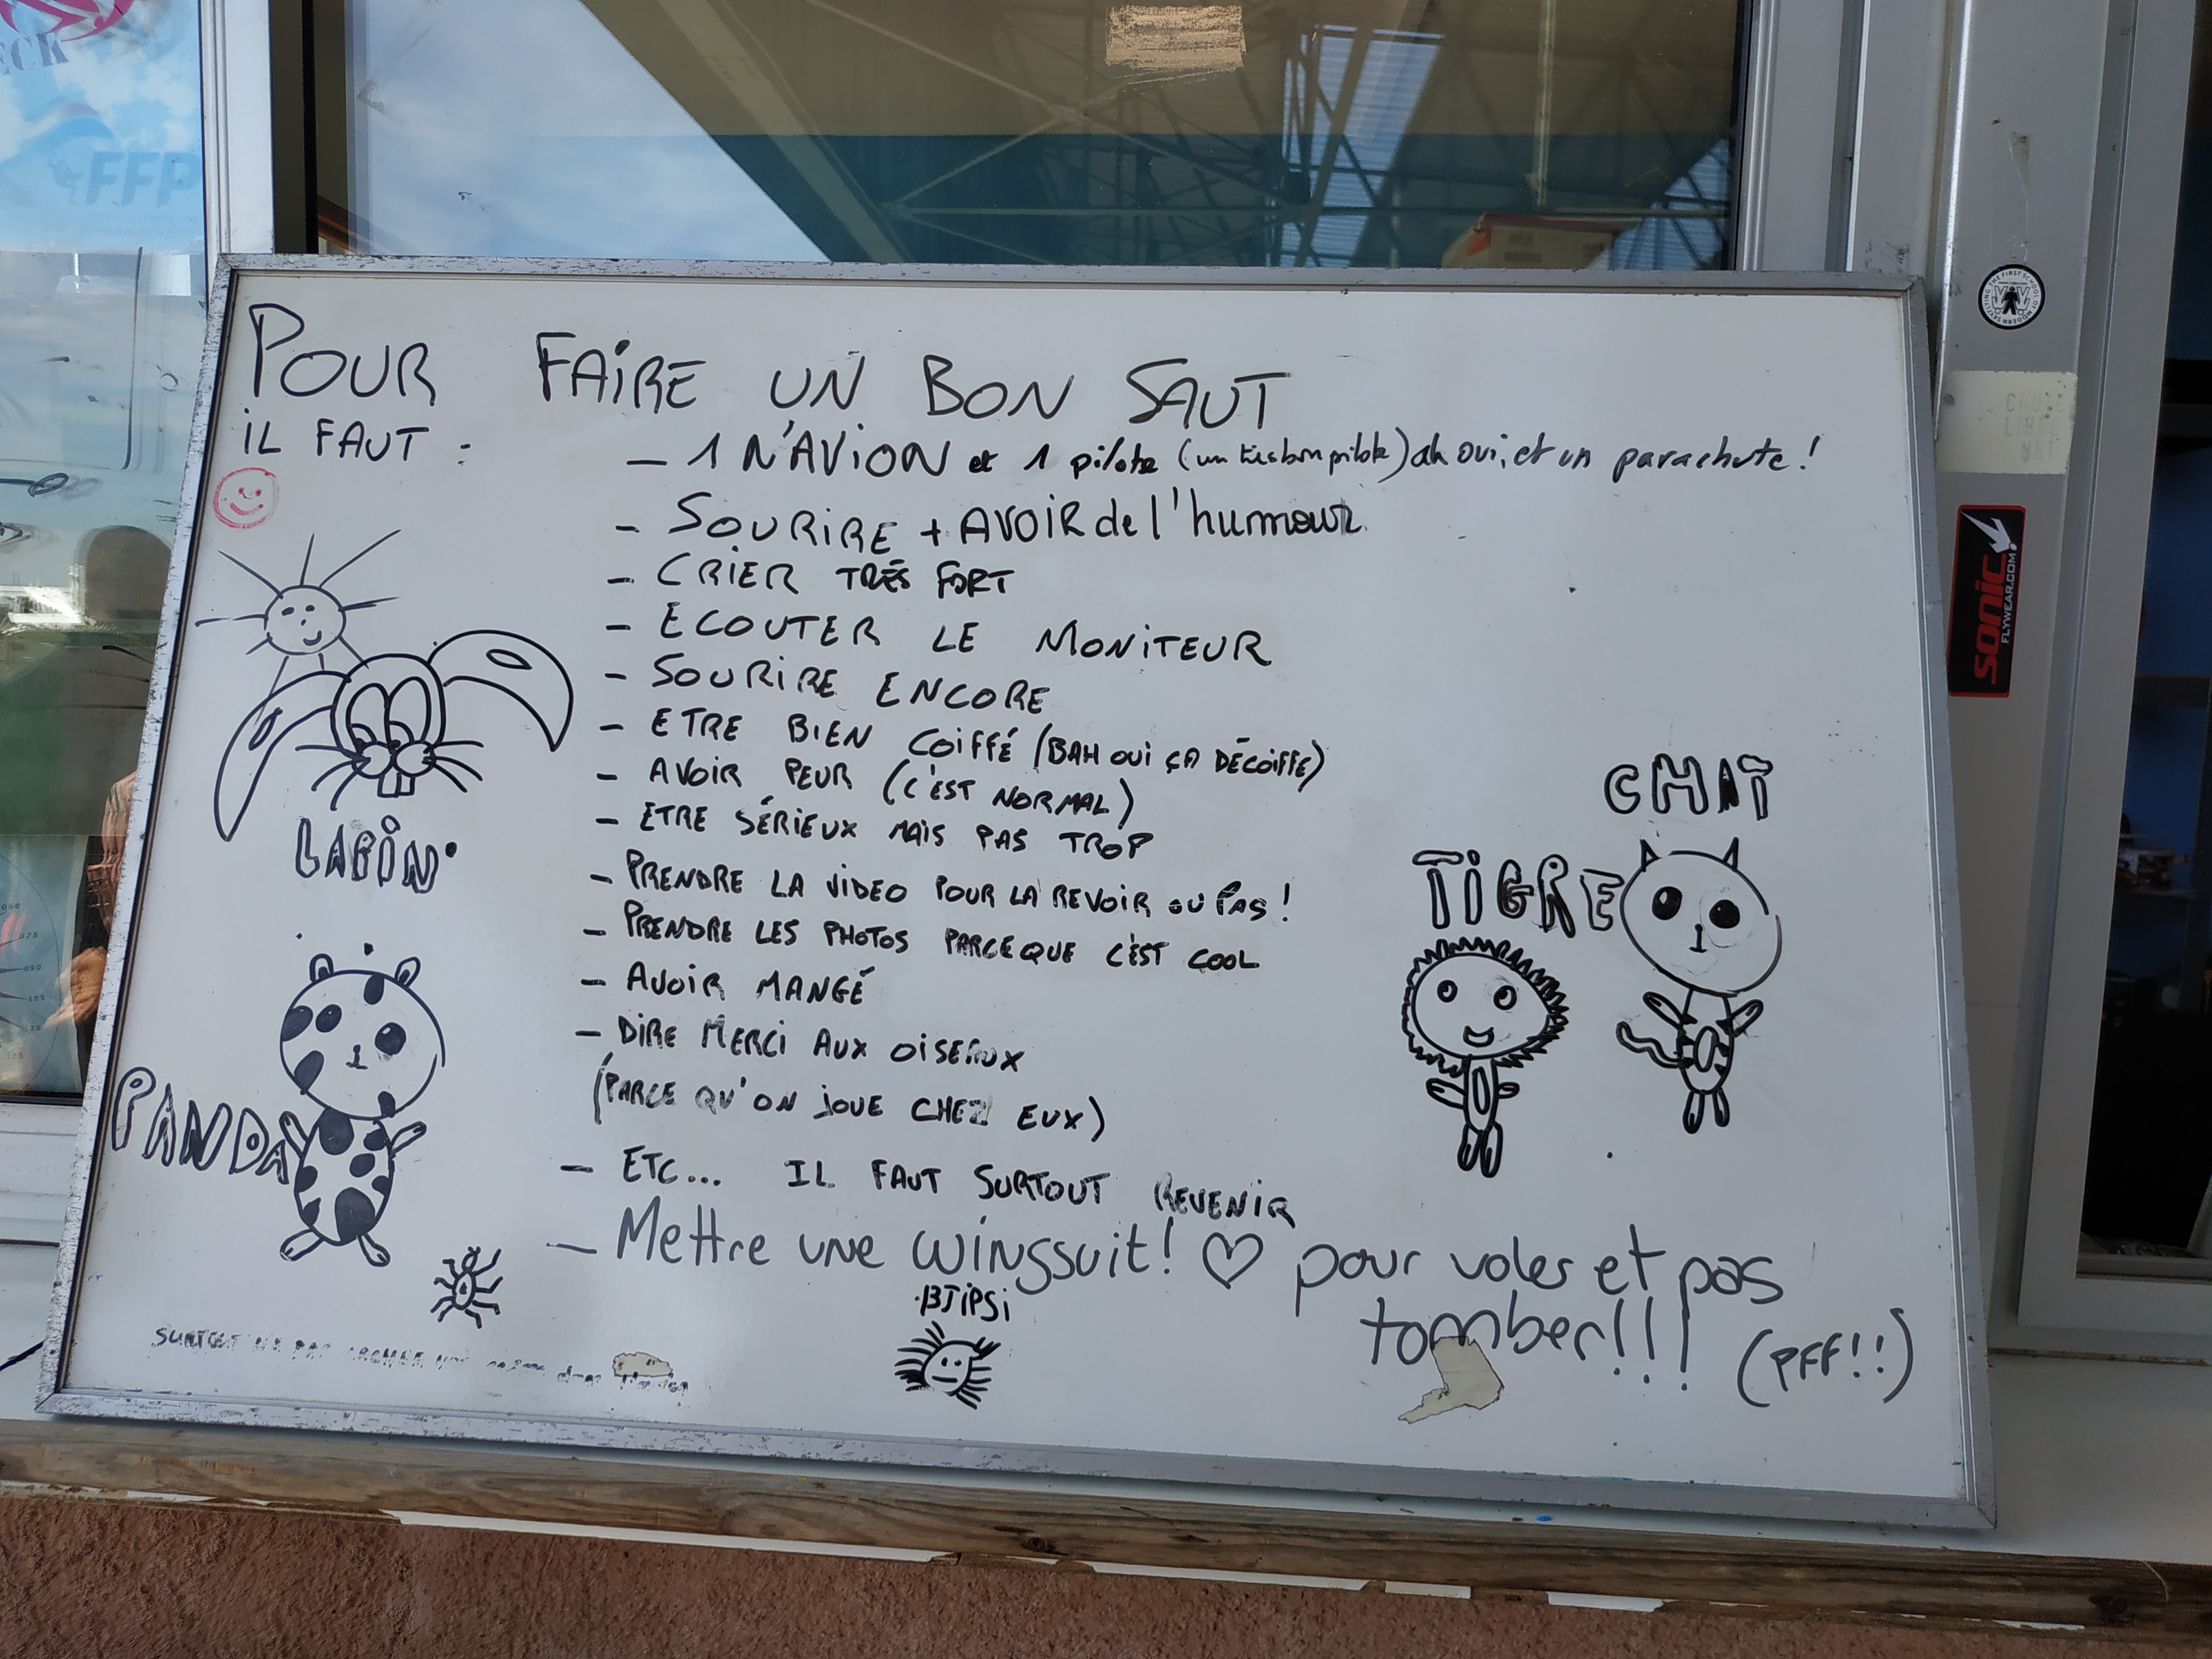 ECK
FFP
POUR FAIRE UN BON SAUT
IL FAUT :
– 1 N'AVION et 1 pilote (un très bon pilote) ah oui, et un parachute !
– SOURIRE + AVOIR de l'humour
– CRIER TRÈS FORT
– ECOUTER LE MONITEUR
– SOURIRE ENCORE
– ETRE BIEN COIFFÉ (BAH OUI ÇA DÉCOIFFE)
– AVOIR PEUR (C'EST NORMAL)
– ETRE SÉRIEUX MAIS PAS TROP
– PRENDRE LA VIDEO POUR LA REVOIR OU PAS !
– PRENDRE LES PHOTOS PARCE QUE C'EST COOL
– AVOIR MANGÉ
– DIRE MERCI AUX OISEAUX
(PARCE QU'ON JOUE CHEZ EUX)
– ETC... IL FAUT SURTOUT REVENIR
– Mettre une wingssuit! ♡ pour voler et pas
tomber!!! (PFF!!)
LAPIN
PANDA
CHAT
TIGRE
SURTOUT
SONIC
FLYWEAR.COM
CHUTE
LIBRE
NET
THE FIRST SCHOOL OF MODERN SKYFLYING